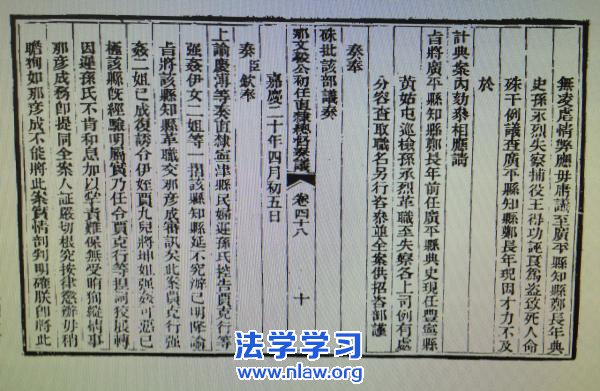 無凌虐情弊應毋庸議至廣平縣知縣鄭長年典
史孫承烈失察捕役王得功誣良爲盜致死人命
殊干例議查廣平縣知縣鄭長年現因才力不及
於
計典案內劾叅相應請
旨將廣平縣知縣鄭長年前任廣平縣典史現任豐寧縣
黃姑屯巡檢孫承烈革職至失察各上司例有處
分容查取職名另行咨叅並全案供招咨部謹
奏奉
硃批該部議奏
那文毅公初任直隸總督奏議 卷四十八 十
嘉慶二十年四月初五日
奏臣欽奉
上諭慶溥等奏直隸寧津縣民婦連孫氏控告賈克行等
强姦伊女二姐等一摺該縣知縣延不究辦已明降諭
旨將該縣知縣革職交那彥成審訊矣此案賈克行强
姦二姐已成復誘令伊姪賈九兒將坤姐强姦可惡已
極該縣旣經驗明屬實乃任令賈克行等揑詞狡展轉
因連孫氏不肯和息加以掌責難保無受賄徇縱情事
那彥成務卽提同全案人証嚴切根究按律懲辦毋稍
瞻徇如那彥成不能將此案實情剖判明確朕卽將此
法学学习
www.nlaw.org